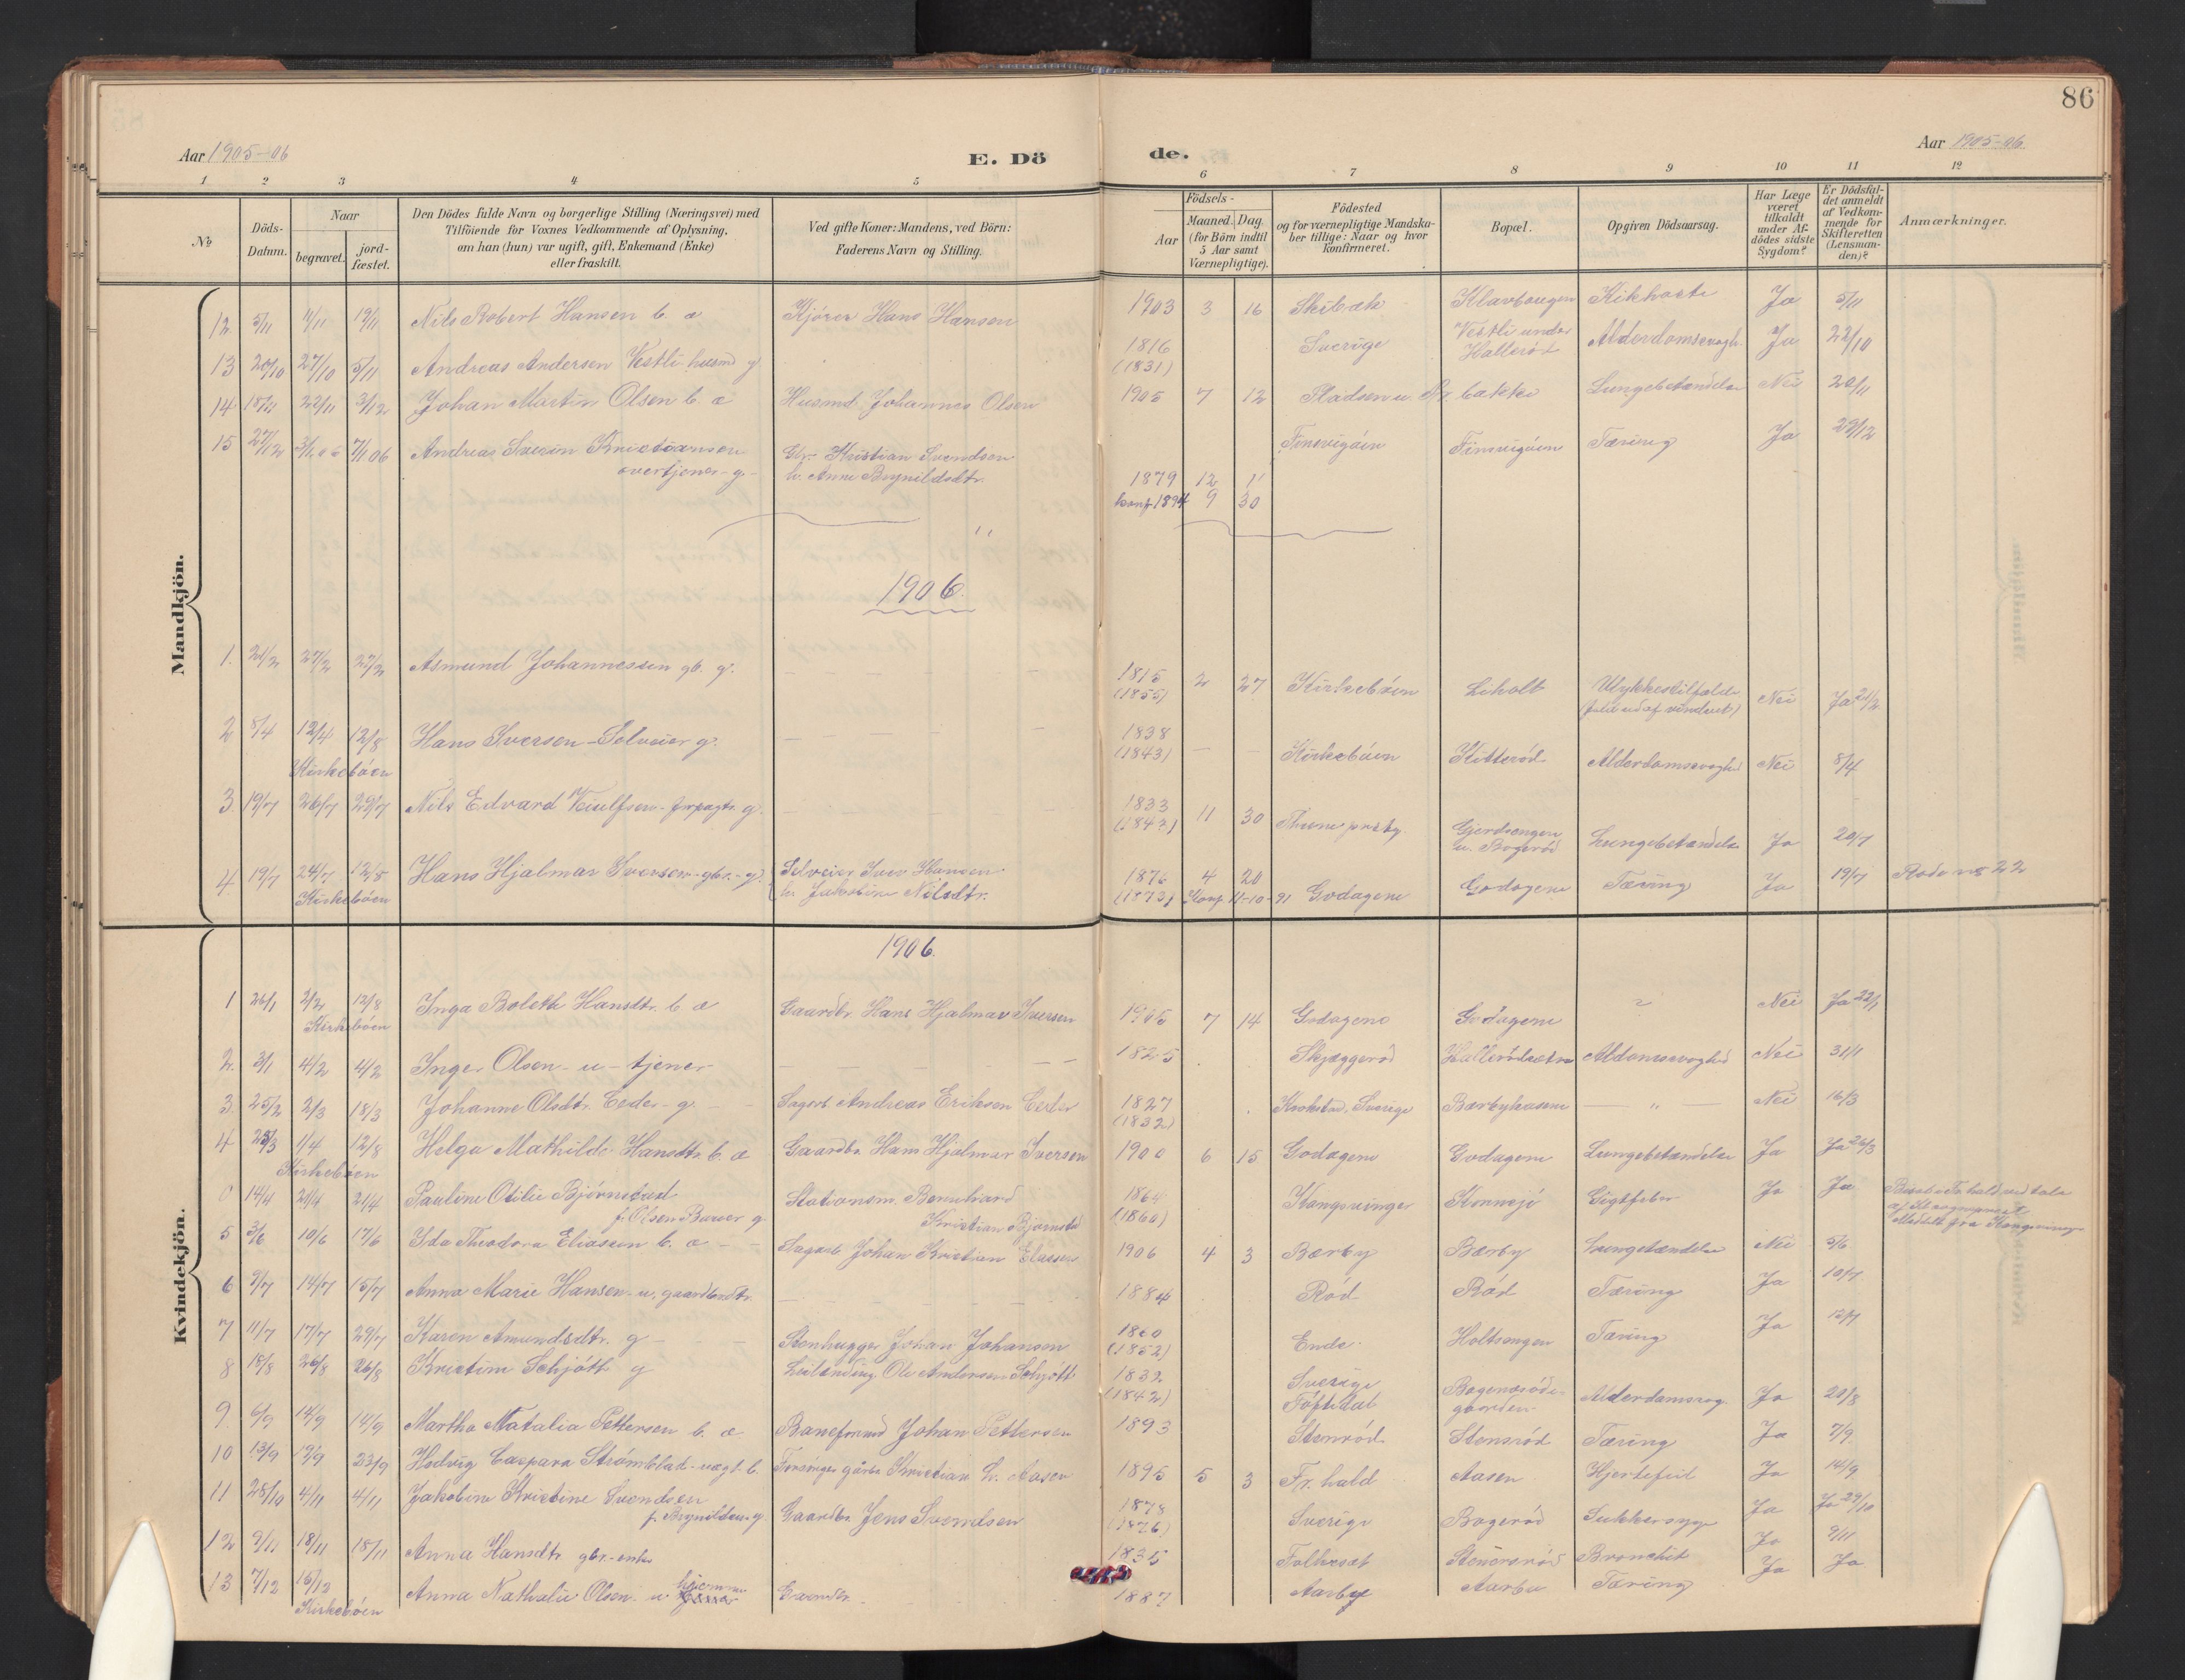 86
Aar 1905-06
E. Dö
de.
Aar 1905-06
1 2 3 4 5 6 7 8 9 10 11 12
No
Döds-Datum.
Naar
begravet.
jord-fæstet.
Den Dödes fulde Navn og borgerlige Stilling (Næringsvei) med
Tilföiende for Voxnes Vedkommende af Oplysning,
om han (hun) var ugift, gift, Enkemand (Enke)
eller fraskilt.
Ved gifte Koner: Mandens, ved Börn:
Faderens Navn og Stilling.
Födsels-
Aar
Maaned. Dag.
(for Börn indtil
5 Aar samt
Værnepligtige).
Födested
og for værnepligtige Mandska-
ber tillige: Naar og hvor
konfirmeret.
Bopæl.
Opgiven Dödsaarsag.
Har Læge
været
tilkaldt
under Af-
dödes sidste
Sygdom?
Er Dödsfal-
det anmeldt
af Vedkom-
mende for
Skifteretten
(Lensman-
den)?
Anmærkninger.
Mandkjön.
12 5/11 11/11 19/11 Nils Robert Hansen b. æ Kjörer Hans Hansen 1903 3 16 Skibæk Klavhougen Kikhoste Ja 5/11
13 20/10 27/10 5/11 Andreas Andersen Vestli husmd g 1816 (1831) Sverige Vestli under Halleröd Alderdomssvagh. Ja 22/10
14 15/11 22/11 3/12 Johan Martin Olsen b. æ Husmd. Johannes Olsen 1905 7 12 Pladsen u. bakke Lungebetændelse Nei 20/11
15 27/12 3/1 06 7/1 06 Andreas Sverin Kristiansen Gbr. Kristian Svendsen Ja 29/12
overtjener - g - h. Anne Brynildsdtr. 1879 12 1 Tæring
konf. 1894 9 30
1906.
1. 21/2 27/2 27/2 Asmund Johannessen gb. g. 1815 (1855) 2 27 Kirkebøen Liholt Ulykkestilfælde Nei Ja 21/2
2 8/4 12/4 12/8 Hans Iversen - Selveier g. 1838 (1843) Kirkebøen Kitteröd Alderdomssvaghed Nei 8/4
Kirkebøen
3. 19/7 26/7 29/7 Nils Edvard g. 1833 (1843) 11 30 Thune prstg Gjerdsengen u. Bogeröd Lungebetændelse Ja 20/7
4. 19/7 24/7 12/8 Hans Hjalmar Iversen - gbr. - g. Selveier Iver Hansen 1876 4 20 Godagene Tæring Ja 19/7 Rode no 22
Kirkebøen h. Jakobine Nilsdtr. (1873) Konf. 11-10-91 Godagene
Kvindekjön.
1906.
1 26/1 2/2 12/8 Inga Bolette Hansdtr. b æ Gaardbr. Hans Hjalmar Iversen 1905 7 14 Godagene Godagene Nei Ja 22/1
Kirkebøen
2. 3/1 4/2 4/2 Inger Olsen - u - tjener 1825 Skjæggeröd Hallerödsætra Nei 31/1
3. 25/2 2/3 18/3 Johanne Olsdtr. Ceder - g. Sagarb. Andreas Eriksen Ceder 1827 (1832) Krokstad, Sverige Bærbyhusene — " — Nei 16/3
4 25/3 1/4 12/8 Helga Mathilde Hansdtr. b. æ Gaardbr. Hans Hjalmar Iversen 1900 6 15 Godagene Godagene Lungebetændelse Ja Ja 26/3
Kirkebøen
0 14/4 21/4 21/4 Pauline Otilie Björnstad Stationsm. Bernhard 1864 Kongsvinger Kornsjö Gigtfeber Ja Ja
f. Olsen g Kristian Björnstad (1860)
5 3/6 10/6 17/6 Ida Theodora Eliassen b. æ Sagarb. Johan Kristian Eliassen 1906 4 3 Bærby Bærby Lungebetændelse Nei 5/6
6 9/7 14/7 15/7 Anna Marie Hansen - u, 1884 Röd Röd Tæring Ja 10/7
7 11/7 17/7 29/7 Karen Amundsdtr. g Stenhugger Johan Johansen 1860 (1852) Ende. Holtsengen Tæring Ja 12/7
8 18/8 26/8 26/8 Kristine Schjött g Leilænding. Ole Andersen Schjött 1832 (1842) Sverige Töftedal Alderdomssvag. Ja 20/8
9. 6/9 14/9 14/9 Martha Natalia Pettersen b. æ Baneformd Johan Pettersen 1893 Stenröd Stensröd Tæring Ja 7/9.
10 13/9 19/9 23/9 Hedvig Caspara Strömblad - uægt b. Kristian L. Aasen 1895 5 3 Fr. hald Aasen Hjertefeil Ja 14/9
11 28/10 4/11 4/11 Jakobine Kristine Svendsen Gaardbr. Jens Svendsen 1878 (1876) Sverige Bogeröd Sukkersyge Ja Ja 29/10
f. Brynildsen - g
12 9/11 18/11 18/11 Anna Hansdtr. gbr.-enke 1835 Bronchit Ja 9/11
13 7/12 16/12 Anna Nathalie Olsen u. hjemme Gaardbr. 1887 Aarbye Aarbu Tæring Ja Ja
Kirkebøen